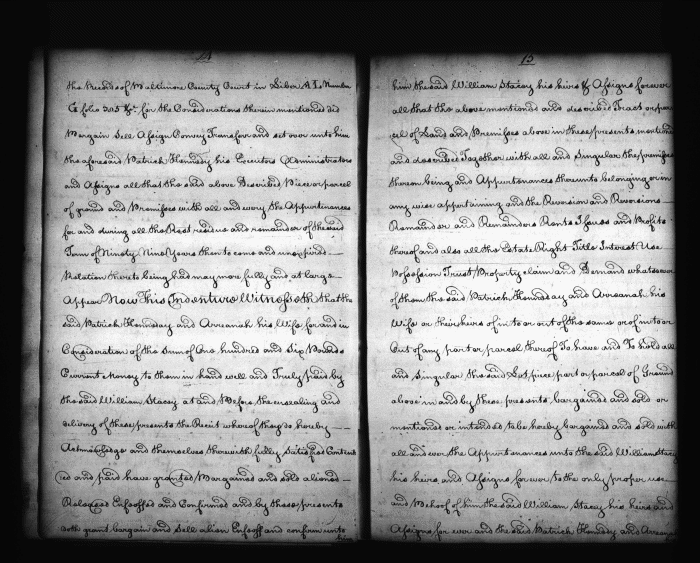 14
the Records of Baltimore County Court in Liber A L Number
G folio 205 &c. for the Considerations therein mentioned did
Bargain Sell Assign Convey Transfer and set over unto him
the aforesaid Patrick Hennesay his Executors Administrators
and Assigns all that the said above Described Piece or parcel
of ground and Premises with all and every the Appurtinances
for and during all the Rest residue and remainder of the said
Term of Ninety Nine Years then to come and unexpired
Relation thereto being had may more fully and at large
Appear Now This Indenture Witnesseth that the
said Patrick Hennesay and Arreanah his Wife, for and in
Consideration of the Sum of One hundred and Six Pounds
Current Money to them in hand well and Truly paid by
the said William Stacey at and Before the ensealing and
delivery of these presents the Receit whereof they do hereby
Acknowledge and themselves therewith fully Satisfied Content
ed and paid have granted Bargained and sold aliened
Released Enfeoffed and Confirmed and by these presents
doth grant bargain and Sell alien Enfeoff and confirm unto
him
15
him the said William Stacey his heirs & Assigns forever
all that the above mentioned and described Tract or par
cel of Land and Premises above in these presents mentioned
and described Together with all and Singular the premises
thereon being and Appurtenances thereunto belonging or in
any wise appertaining and the Reversion and Reversions
Remainder and Remainders Rents Issues and Profits
thereof and also all the Estate Right Title Interest Use
Possession Trust Property claim and Demand whatsoever
of them the said Patrick Hennesday and Arreanah his
Wife or their heirs of in to or out of the same or of in to or
Out of any part or parcel thereof To have and To hold all
and singular the said Lot piece part or parcel of Ground
above in and by these presents bargained and sold or
mentioned or intended to be hereby bargained and sold with
all and ever the Appurtenances unto the said William Stacey
his heirs and Assigns for ever to the only proper use
and Behoof of him the said William Stacey his heirs and
Assigns for ever and the said Patrick Hennesay and Arreanah